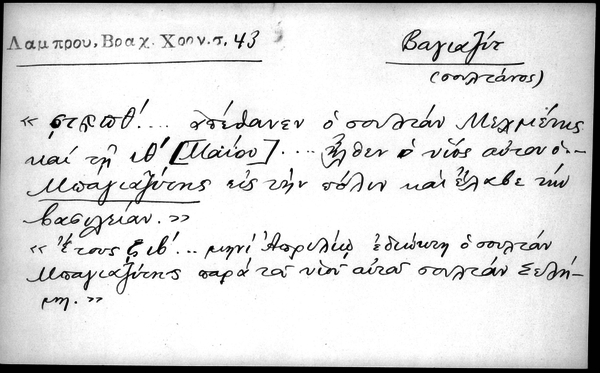 Λαμπρου, Βραχ. Χρον. τ. 43
Βαγιαζὶτ
(σουλτάνος)
« ͵ϛτϟθʹ.... ἀπέθανεν ὁ σουλτὰν Μεχμέτης
καὶ τῇ ιθʹ [Μαΐου].... ἦλθεν ὁ υἱὸς αὐτοῦ ὁ
Μπαγιαζήτης εἰς τὴν πόλιν καὶ ἔλαβε τὴν
βασιλείαν. »
« Ἔτους ζιβʹ... μηνὶ Ἀπριλίῳ ἐδιώχτη ὁ σουλτὰν
Μπαγιαζήτης παρὰ τοῦ υἱοῦ αὐτοῦ σουλτὰν Σελή-
μη. »